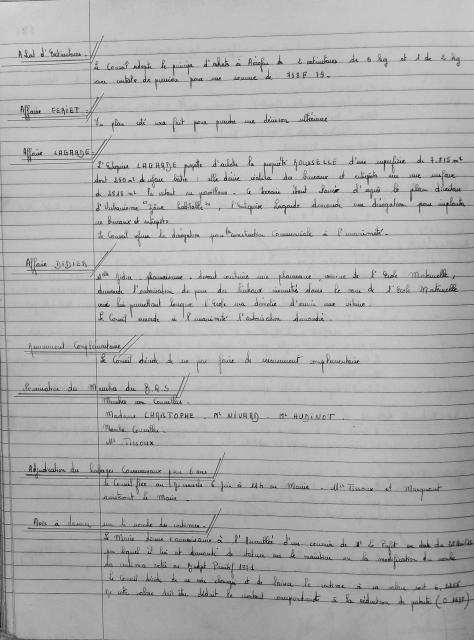 Achat d'Extincteurs.
Le Conseil adopte le principe d'achats à de 2 extincteurs de 6 kg et 1 de 2 kg
avec contrôle de pression pour une somme de 753F.79.
Affaire FERIET
Un plan côté sera fait pour prendre une décision ultérieure
Affaire LAGARDE
L'Entreprise LAGARDE projette d'acheter la propriété ROUSSELLE d'une superficie de 7.815 m²
dont 250 m² de surface bâtie : elle désire installer des bureaux et entrepôts sur une surface
de m² le restant en pavillons. Ce terrain étant classé d'après le plan directeur
d'Urbanisme "Zône habitable", l'Entreprise Lagarde demande une dérogation pour implanter
ses bureaux et entrepôts
Le Conseil refuse la dérogation pour la construction Commerciale à l'unanimité.
Affaire DIDIER
Melle Didier, pharmacienne, devant construire une pharmacie, voisine de l'Ecole Maternelle,
demande l'autorisation de poser des linteaux dans le mur de l'Ecole Maternelle
ceci lui permettant lorsque l'Ecole sera d'ouvrir une vitrine.
Le Conseil accorde à l'unanimité l'autorisation demandée.
Armement Complémentaire
Le Conseil décide de ne pas faire de recensement complémentaire
Nomination des Membres du B.A.S
Membres non Conseillers
Madame CHRISTOPHE - Mr NIVARD - Mr AUDINOT.
Membres Conseillers
Mr Tissoux
Adjudication des Communaux pour 6 ans
Le Conseil fixe au juin à 14h en Mairie. Mrs Tissoux et Marquant
assisteront le Maire.
Avis à donner sur le montant des centimes.
Le Maire donne connaissance à l'Assemblée d'un courrier de Mr le Préfet en date du
par lequel il lui est demandé de statuer sur le maintien ou la modification du nombre
de centimes voté au Budget Primitif 1971
Le Conseil décide de ne rien changer et de laisser le centime à sa valeur soit
de cette valeur doit être déduit le montant correspondant à la réduction de patente